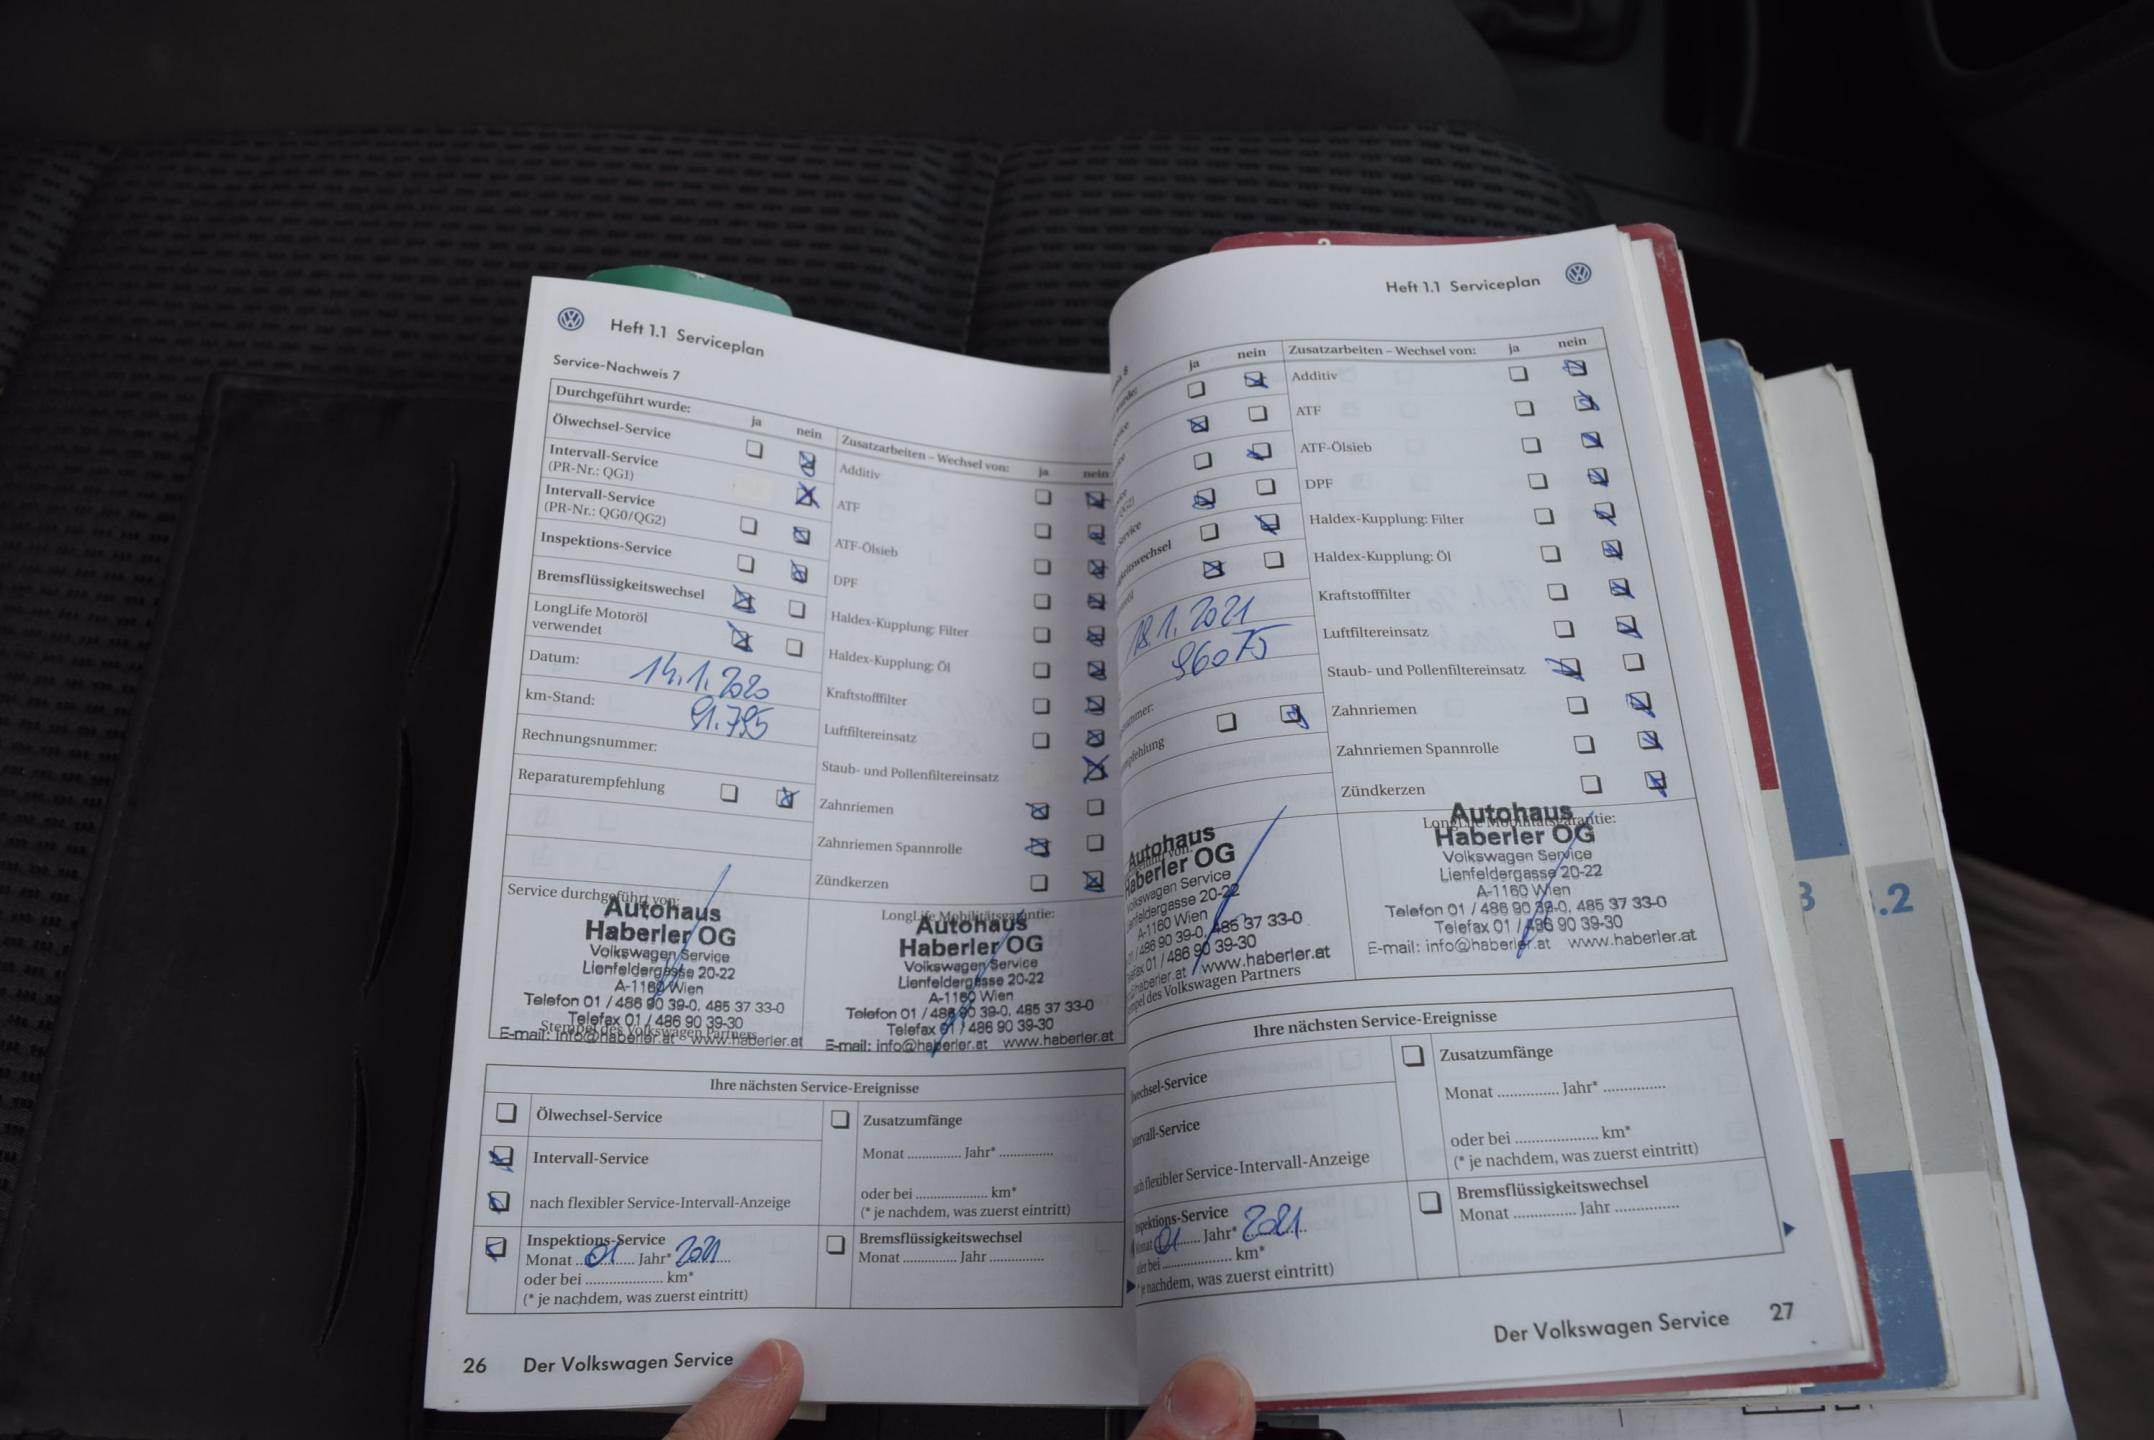 Heft 1.1 Serviceplan
Service-Nachweis 7
Durchgeführt wurde:
ja nein
Ölwechsel-Service
Intervall-Service
(PR-Nr.: QG1)
Intervall-Service
(PR-Nr.: QG0/QG2)
Inspektions-Service
Bremsflüssigkeitswechsel
LongLife Motoröl
verwendet
Datum: 14.1.2020
km-Stand: 91.795
Rechnungsnummer:
Reparaturempfehlung
Zusatzarbeiten – Wechsel von: ja nein
Additiv
ATF
ATF-Ölsieb
DPF
Haldex-Kupplung: Filter
Haldex-Kupplung: Öl
Kraftstofffilter
Luftfiltereinsatz
Staub- und Pollenfiltereinsatz
Zahnriemen
Zahnriemen Spannrolle
Zündkerzen
Service durchgeführt von:
Autohaus
Haberler OG
Volkswagen Service
Lienfeldergasse 20-22
A-1160 Wien
Telefon 01 / 486 90 39-0, 485 37 33-0
Telefax 01 / 486 90 39-30
Stempel des Volkswagen Partners
E-mail: info@haberler.at www.haberler.at
LongLife Mobilitätsgarantie:
Autohaus
Haberler OG
Volkswagen Service
Lienfeldergasse 20-22
A-1160 Wien
Telefon 01 / 486 90 39-0, 485 37 33-0
Telefax 01 / 486 90 39-30
E-mail: info@haberler.at www.haberler.at
Ihre nächsten Service-Ereignisse
Ölwechsel-Service
Intervall-Service
nach flexibler Service-Intervall-Anzeige
Inspektions-Service
Monat 01 Jahr* 2021
oder bei .................... km*
(* je nachdem, was zuerst eintritt)
Zusatzumfänge
Monat .............. Jahr* ..............
oder bei .................... km*
(* je nachdem, was zuerst eintritt)
Bremsflüssigkeitswechsel
Monat .............. Jahr ..............
26 Der Volkswagen Service
Heft 1.1 Serviceplan
ja nein
18.1.2021
96075
Zusatzarbeiten – Wechsel von: ja nein
Additiv
ATF
ATF-Ölsieb
DPF
Haldex-Kupplung: Filter
Haldex-Kupplung: Öl
Kraftstofffilter
Luftfiltereinsatz
Staub- und Pollenfiltereinsatz
Zahnriemen
Zahnriemen Spannrolle
Zündkerzen
Autohaus
Haberler OG
Volkswagen Service
Lienfeldergasse 20-22
A-1160 Wien
/ 486 90 39-0, 485 37 33-0
01 / 486 90 39-30
www.haberler.at
des Volkswagen Partners
LongLife Mobilitätsgarantie:
Autohaus
Haberler OG
Volkswagen Service
Lienfeldergasse 20-22
A-1160 Wien
Telefon 01 / 486 90 39-0, 485 37 33-0
Telefax 01 / 486 90 39-30
E-mail: info@haberler.at www.haberler.at
Ihre nächsten Service-Ereignisse
flexibler Service-Intervall-Anzeige
Monat 01 Jahr* 2021
bei .................... km*
je nachdem, was zuerst eintritt)
Zusatzumfänge
Monat .............. Jahr* ..............
oder bei .................... km*
(* je nachdem, was zuerst eintritt)
Bremsflüssigkeitswechsel
Monat .............. Jahr ..............
Der Volkswagen Service 27
3
.2